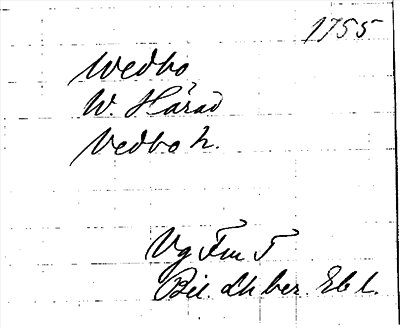 1755
Wedbo
W. Härad
Vedbo h.
Vg Fm T
Bil. Lh ber. Ebl.